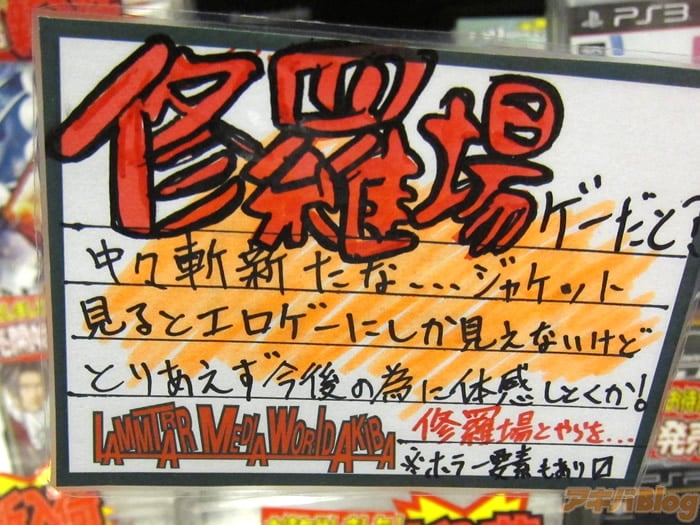 PS3
修羅場
ゲーだと?
中々斬新たな...ジャケット
見るとエロゲーにしか見えないけど
とりあえず今後の為に体感しとくか!
LAMMTARR MEDIA WORLD AKIBA
修羅場とやらを...
※ホラー要素もあり
アキバBlog